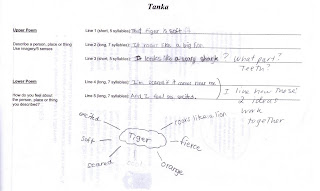 Tanka
Upper Poem
Line 1 (short, 5 syllables) That tiger is soft
Describe a person, place or thing
Use imagery/5 senses
Line 2 (long, 7 syllables) It roar like a big
Line 3 (short, 5 syllables) It looks like a scary shark ? What part?
Teeth?
Lower Poem
Line 4 (long, 7 syllables) I'm scared it near me
How do you feel about
the person, place or thing
you described?
Line 5 (long, 7 syllables) And I feel so excited.
I like how these
2 ideas
work
together
excited
roars like a lion
soft
Tiger
fierce
scared
orange